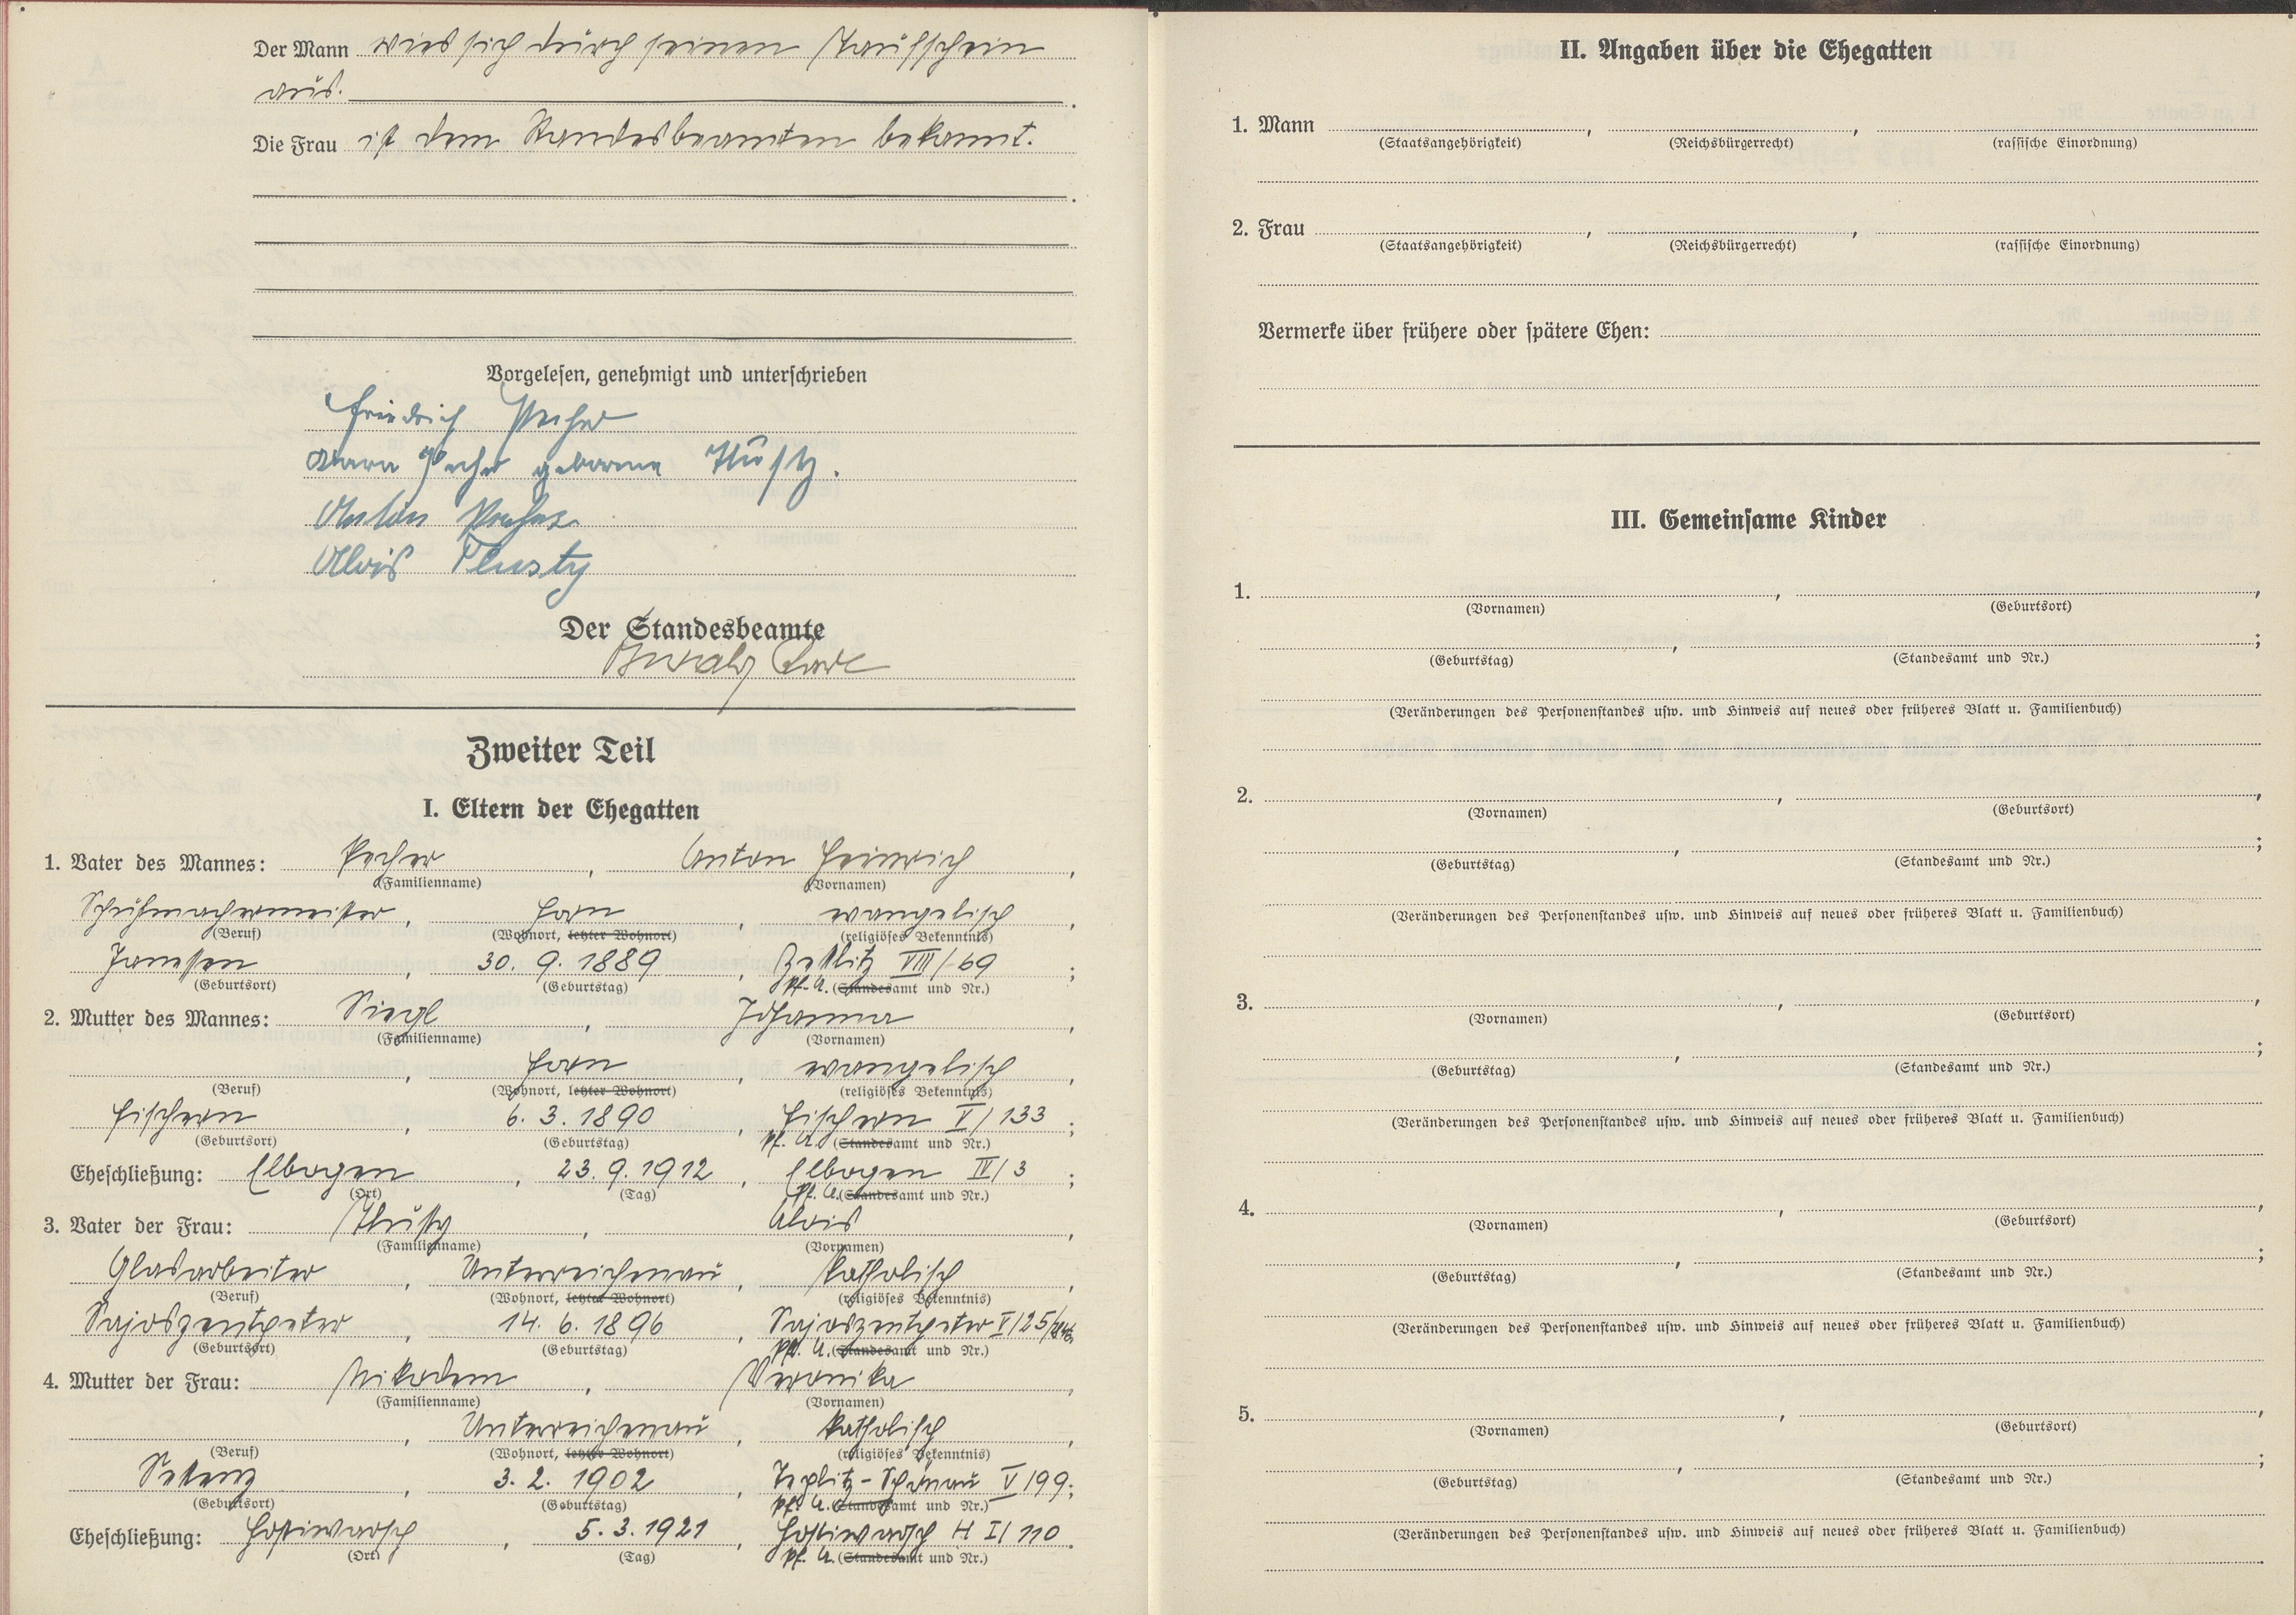 Der Mann wies sich durch seinen Taufschein
aus.
Die Frau ist dem Standesbeamten bekannt.
Vorgelesen, genehmigt und unterschrieben
Friedrich Pecher
Pecher geborene Tlustý.
Anton Pecher
Alois Tlusty
Der Standesbeamte
Zweiter Teil
I. Eltern der Ehegatten
1. Vater des Mannes: Pecher, Anton Heinrich,
(Familienname) (Vornamen)
Schuhmachermeister, Horn, evangelisch,
(Beruf) (Wohnort, letzter Wohnort) (religiöses Bekenntnis)
Janessen, 30. 9. 1889, Zettlitz VIII/69;
(Geburtsort) (Geburtstag) pf. A. (Standesamt und Nr.)
2. Mutter des Mannes: Siegl, Johanna,
(Familienname) (Vornamen)
, Horn, evangelisch,
(Beruf) (Wohnort, letzter Wohnort) (religiöses Bekenntnis)
Fischern, 6. 3. 1890, Fischern I/133;
(Geburtsort) (Geburtstag) pf. A. (Standesamt und Nr.)
Eheschließung: Elbogen, 23. 9. 1912, Elbogen IV/3;
(Ort) (Tag) pf. A. (Standesamt und Nr.)
3. Vater der Frau: Tlustý, Alois,
(Familienname) (Vornamen)
Glasarbeiter, Unterreichenau, katholisch,
(Beruf) (Wohnort, letzter Wohnort) (religiöses Bekenntnis)
Sajoszentpeter, 14. 6. 1896, Sajoszentpeter I/25/
(Geburtsort) (Geburtstag) pf. A. (Standesamt und Nr.)
4. Mutter der Frau: Nikodem, Veronika,
(Familienname) (Vornamen)
, Unterreichenau, katholisch,
(Beruf) (Wohnort, letzter Wohnort) (religiöses Bekenntnis)
Settenz, 3. 2. 1902, Teplitz-Schönau V/99;
(Geburtsort) (Geburtstag) pf. A. (Standesamt und Nr.)
Eheschließung: Hostiwarsch, 5. 3. 1921, Hostiwarsch H I/110.
(Ort) (Tag) pf. A. (Standesamt und Nr.)
II. Angaben über die Ehegatten
1. Mann , ,
(Staatsangehörigkeit) (Reichsbürgerrecht) (rassische Einordnung)
2. Frau , ,
(Staatsangehörigkeit) (Reichsbürgerrecht) (rassische Einordnung)
Vermerke über frühere oder spätere Ehen:
III. Gemeinsame Kinder
1. , ,
(Vornamen) (Geburtsort)
, ;
(Geburtstag) (Standesamt und Nr.)
(Veränderungen des Personenstandes usw. und Hinweis auf neues oder früheres Blatt u. Familienbuch)
2. , ,
(Vornamen) (Geburtsort)
, ;
(Geburtstag) (Standesamt und Nr.)
(Veränderungen des Personenstandes usw. und Hinweis auf neues oder früheres Blatt u. Familienbuch)
3. , ,
(Vornamen) (Geburtsort)
, ;
(Geburtstag) (Standesamt und Nr.)
(Veränderungen des Personenstandes usw. und Hinweis auf neues oder früheres Blatt u. Familienbuch)
4. , ,
(Vornamen) (Geburtsort)
, ;
(Geburtstag) (Standesamt und Nr.)
(Veränderungen des Personenstandes usw. und Hinweis auf neues oder früheres Blatt u. Familienbuch)
5. , ,
(Vornamen) (Geburtsort)
, ;
(Geburtstag) (Standesamt und Nr.)
(Veränderungen des Personenstandes usw. und Hinweis auf neues oder früheres Blatt u. Familienbuch)